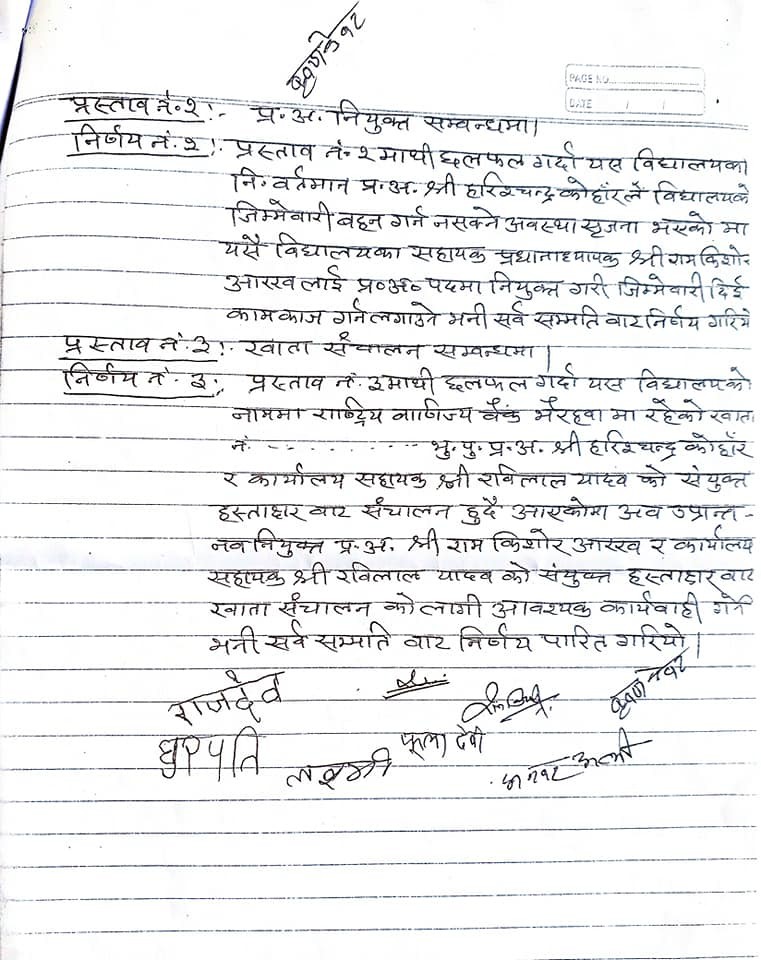 PAGE NO.
DATE / /
प्रस्ताव नं. २ :- प्र. अ. नियुक्त सम्बन्धमा।
निर्णय नं. २ :- प्रस्ताव नं. २ माथी छलफल गर्दा यस विद्यालयका
नि. वर्तमान प्र. अ. श्री हरिश्चन्द्र कोहाँर ले विद्यालयको
जिम्मेवारी बहन गर्न नसक्ने अवस्था सृजना भएको मा
यसै विद्यालयका सहायक प्रधानाध्यापक श्री राम किशोर
आरख लाई प्र० अ० पदमा नियुक्त गरी जिम्मेवारी दिई
काम काज गर्न लगाउने भनी सर्व सम्मति वार निर्णय गरियो
प्रस्ताव नं. ३ :- खाता संचालन सम्बन्धमा।
निर्णय नं. ३ :- प्रस्ताव नं. ३ माथी छलफल गर्दा यस विद्यालयको
नाममा राष्ट्रिय वाणिज्य बैंक भैरहवा मा रहेको खाता
नं. - - - - - - - - - - भु. पु. प्र. अ. श्री हरिश्चन्द्र कोहाँर
र कार्यालय सहायक श्री रविलाल यादव को संयुक्त
हस्ताक्षर वार संचालन हुदै आएकोमा अव उप्रान्त -
नव नियुक्त प्र. अ. श्री राम किशोर आरख र कार्यालय
सहायक श्री रविलाल यादव को संयुक्त हस्ताक्षर वार
खाता संचालन को लागी आवश्यक कार्यवाही गर्ने
भनी सर्व सम्मति वार निर्णय पारित गरियो।
राजदेव
फूला देवी